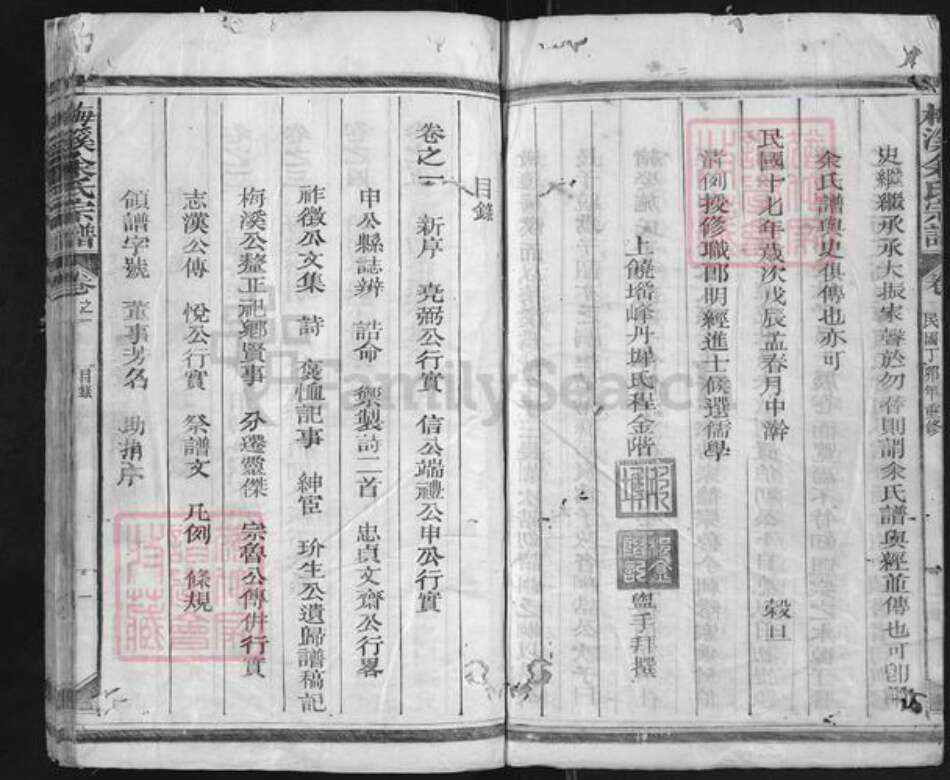 史繼繼承承大振家聲於勿替則謂余氏譜與經並傳也可卽謂
余氏譜與史俱傳也亦可
民國十七年歲次戊辰孟春月中澣 穀旦
清例授修職郎明經進士候選儒學
上饒㙮峰丹墀氏程金階 盥手拜撰
民國丁卯年重修
目錄
卷之一 新序 亮弼公行實 信公端禮公申公行實
申公縣誌辨 誥命 禦製詩二首 忠貞文齋公行畧
祚徵公文集 詩 褒恤記事 紳宦 玠生公遺歸譜稿記
梅溪公鼇正祀鄉賢事 分遷靈傑 宗魯公傳併行實
志漢公傳 悅公行實 祭譜文 凡例 條規
領譜字號 董事芳名 助捐序
梅溪余氏宗譜 卷之一 目錄 一